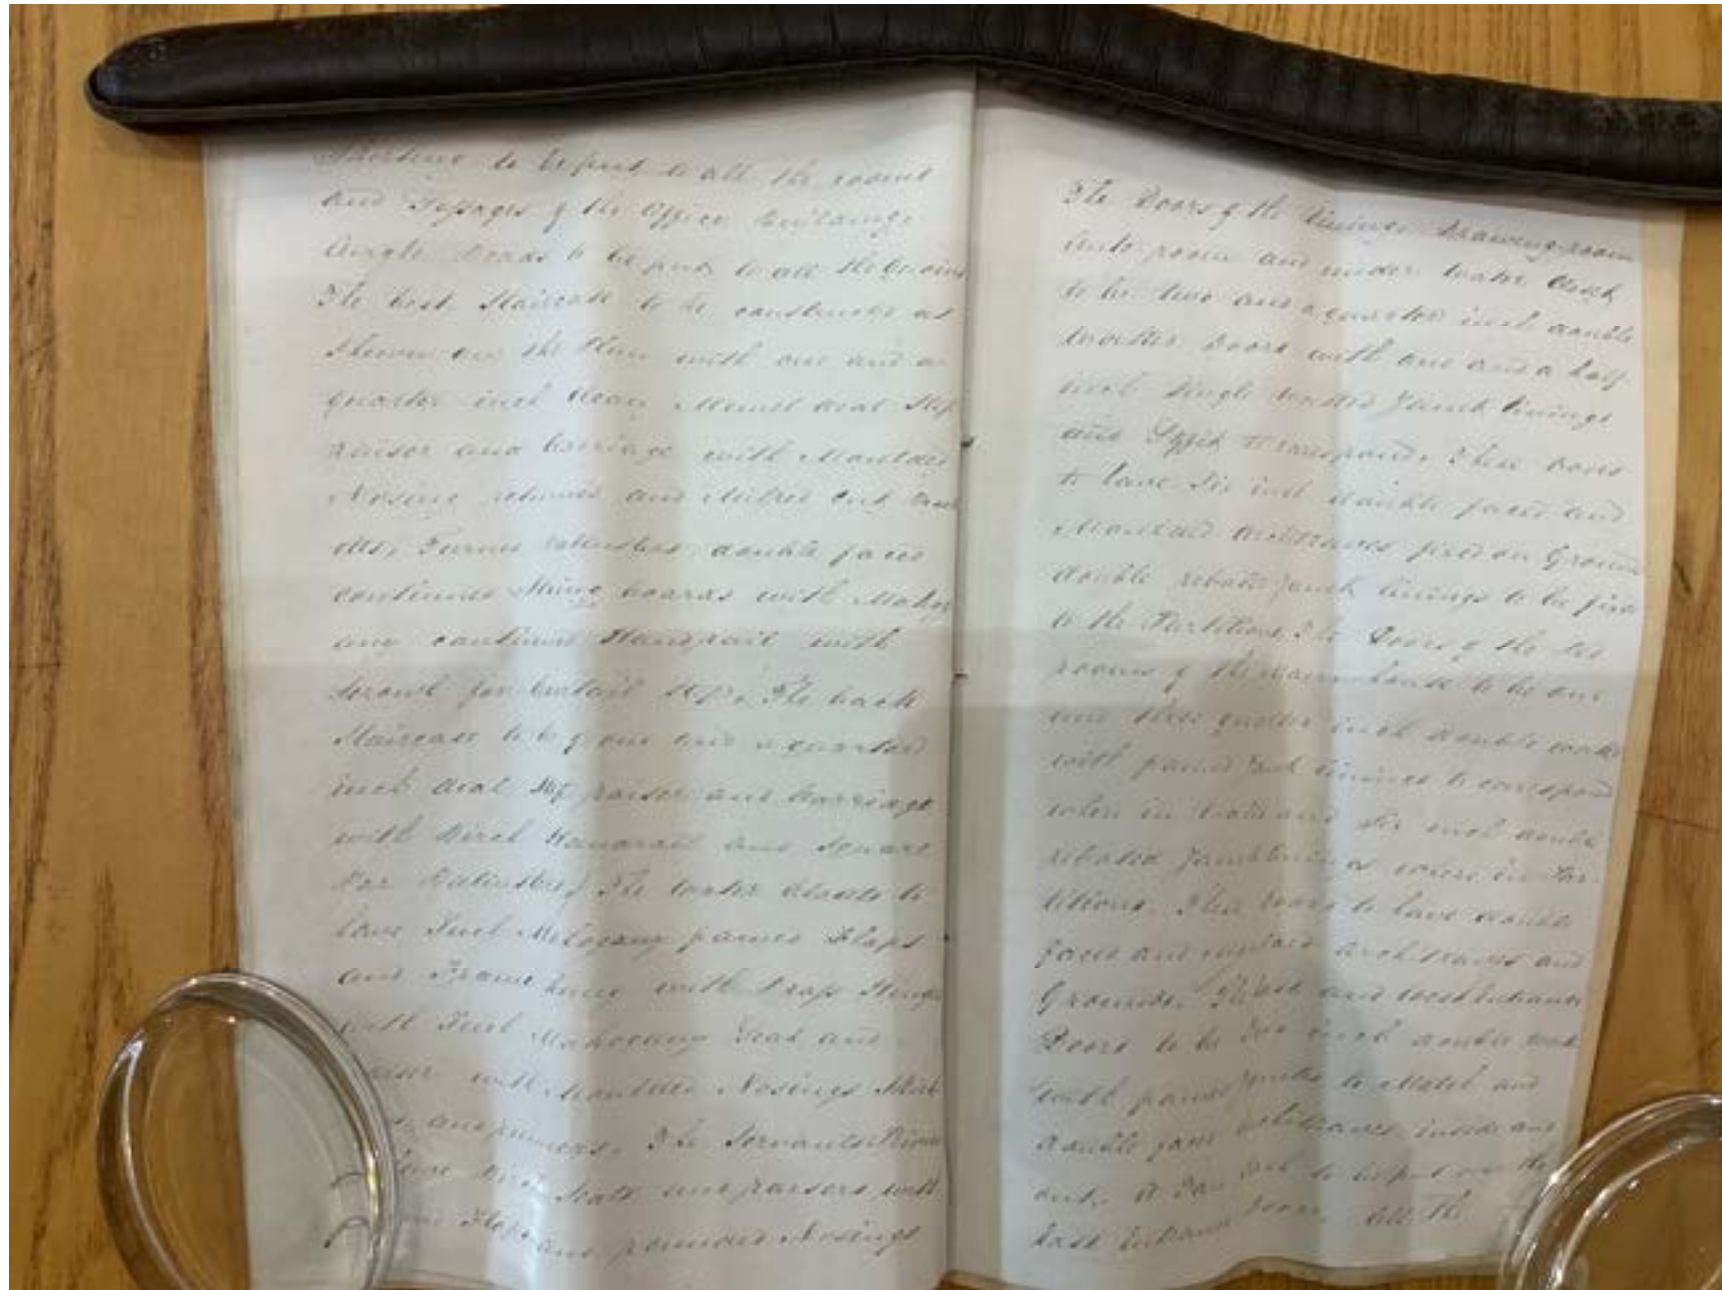 Skirting to be put to all the rooms
and Passages of the Office Buildings
Angle Beads to be put to all the
The best Staircase to be constructed as
Shewn on the Plan with one and a
quarter inch clean Memel deal Step
raiser and Carriage with Moulded
Nosing returned and Mitred Cut
Turned Ballusters double faced
continued String boards with Mahog
any continued Handrail with
Scrowl for Curtail Step. The back
Staircase to be of one and a quarter
inch deal Step raiser and Carriage
with Birch Handrail and Square
Bar Ballusters The Water Closets to
have Inch Mahogany framed Flaps
and Frame hung with Hinges
with Inch Mahogany Seat and
raiser with Moulded Nosings
The Servants
have Seats and raisers with
Flaps and rounded Nosings
The Doors of the Dining, Drawing-room
Anti-room and under Water Closet
to be two and a quarter inch double
Doors with one and a half
inch Single Jamb linings
and Soffit to correspond. These Doors
to have Six inch double faced and
Moulded Architraves fixed on Grounds
double rebated Jamb linings to be fixed
to the Partitions. The Doors of the bed
rooms of the Main house to be one
and three quarter inch double
with framed Jamb linings to correspond
when in and Six inch double
rebated Jamb linings where in Par-
titions. These Doors to have double
faced and moulded architraves and
Grounds. East and West Entrance
Doors to be inch double
with framed to Match and
double faced architraves inside and
out. A Fan to be put over the
East Entrance Door. All the